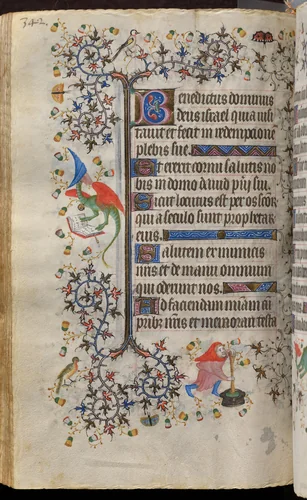 Benedictus dominus
deus israel quia visi
tavit et fecit in redempcione
plebis sue.
Et erexit cornu salutis no
bis in domo david pu̅i̅ sui.
Sicut locutus est per os sc̅or̅
qui a seculo sunt prophetar̅
eius.
Salutem ex inimicis
n̅r̅is et de manu omnium
qui oderunt nos.
Ad faciendam m̅iam̅ cu̅
prib; n̅r̅is et memorari testa